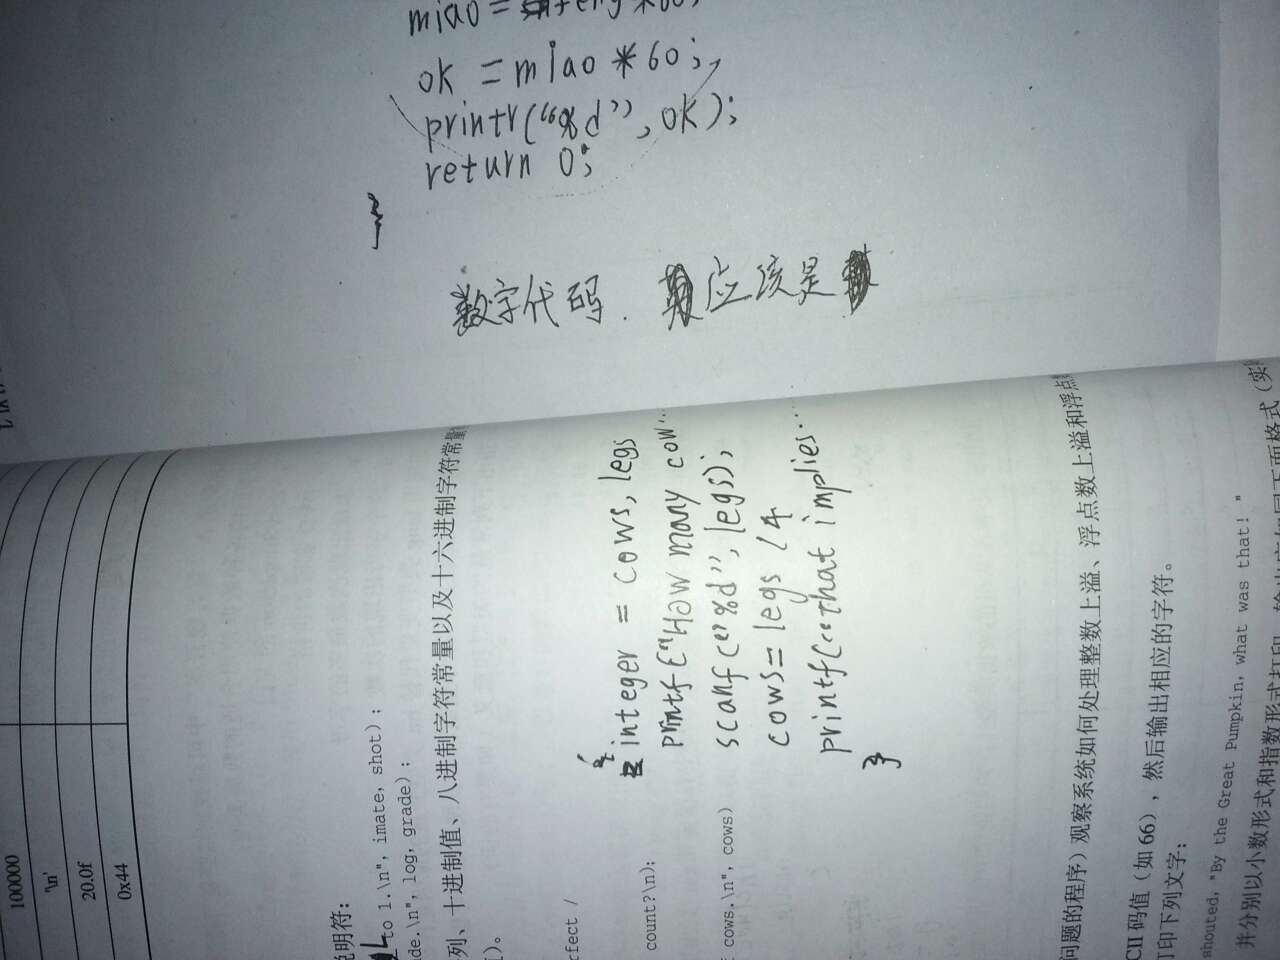 ok = miao *60;
printr("%d", ok);
return 0;
数字代码. 应该是
100000
'\n'
20.0f
0x44
说明符:
to 1.\n", imate, shot);
de.\n", log, grade);
列、十进制值、八进制字符常量以及十六进制字符常量
)。
{
integer = cows, legs
printf("How many cow..
scanf("%d", legs);
cows = legs / 4
printf("that implies...
}
rfect /
count?\n);
cows.\n", cows)
问题的程序）观察系统如何处理整数上溢、浮点数上溢和浮点
CII 码值（如 66），然后输出相应的字符。
打印下列文字：
shouted, "By the Great Pumpkin, what was that!"
并分别以小数形式和指数形式打印